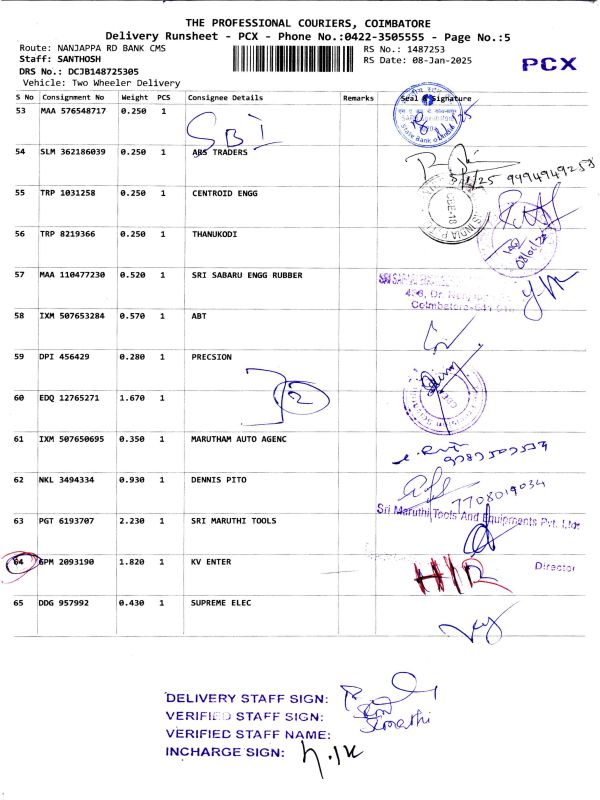 THE PROFESSIONAL COURIERS, COIMBATORE
Delivery Runsheet - PCX - Phone No.:0422-3505555 - Page No.:5
Route: NANJAPPA RD BANK CMS RS No.: 1487253
Staff: SANTHOSH RS Date: 08-Jan-2025
PCX
DRS No.: DCJB148725305
Vehicle: Two Wheeler Delivery
S No Consignment No Weight PCS Consignee Details Remarks Seal & Signature
53 MAA 576548717 0.250 1 SBI
State Bank of India
54 SLM 362186039 0.250 1 ABS TRADERS
8/1/25 9994949258
55 TRP 1031258 0.250 1 CENTROID ENGG
56 TRP 8219366 0.250 1 THANUKODI
57 MAA 110477230 0.520 1 SRI SABARU ENGG RUBBER
58 IXM 507653284 0.570 1 ABT
59 DPI 456429 0.280 1 PRECSION
60 EDQ 12765271 1.670 1
61 IXM 507650695 0.350 1 MARUTHAM AUTO AGENC
62 NKL 3494334 0.930 1 DENNIS PITO
7708019034
63 PGT 6193707 2.230 1 SRI MARUTHI TOOLS
Sri Maruthi Tools And Equipments Pvt. Ltd
Director
64 GPM 2093190 1.820 1 KV ENTER
H/R
65 DDG 957992 0.430 1 SUPREME ELEC
DELIVERY STAFF SIGN:
VERIFIED STAFF SIGN:
VERIFIED STAFF NAME:
INCHARGE SIGN: